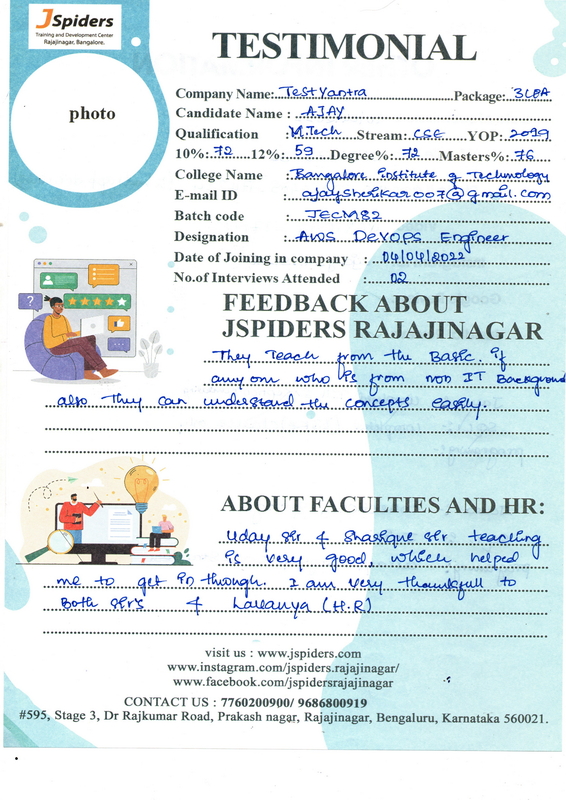 JSpiders
Training and Development Center
Rajajinagar, Bangalore.
TESTIMONIAL
photo
Company Name: TestYantra Package: 3LPA
Candidate Name : AJAY
Qualification : M.Tech Stream: CSE YOP: 2019
10%: 72 12%: 59 Degree%: 72 Masters%: 76
College Name : Bangalore Institute of Technology
E-mail ID : ajayshehkar007@gmail.com
Batch code : JECM82
Designation : AWS DEVOPS Engineer
Date of Joining in company : 04/04/2022
No.of Interviews Attended : 02
FEEDBACK ABOUT
JSPIDERS RAJAJINAGAR
They Teach from the Basic. if
any one who is from non IT Background
also They can understand the concepts easily.
ABOUT FACULTIES AND HR:
Uday sir & Shasique sir teaching
is very good, which helped
me to get in through. I am very thankfull to
Both sir's & Lavanya (H.R)
visit us : www.jspiders.com
www.instagram.com/jspiders.rajajinagar/
www.facebook.com/jspidersrajajinagar
CONTACT US : 7760200900/ 9686800919
#595, Stage 3, Dr Rajkumar Road, Prakash nagar, Rajajinagar, Bengaluru, Karnataka 560021.